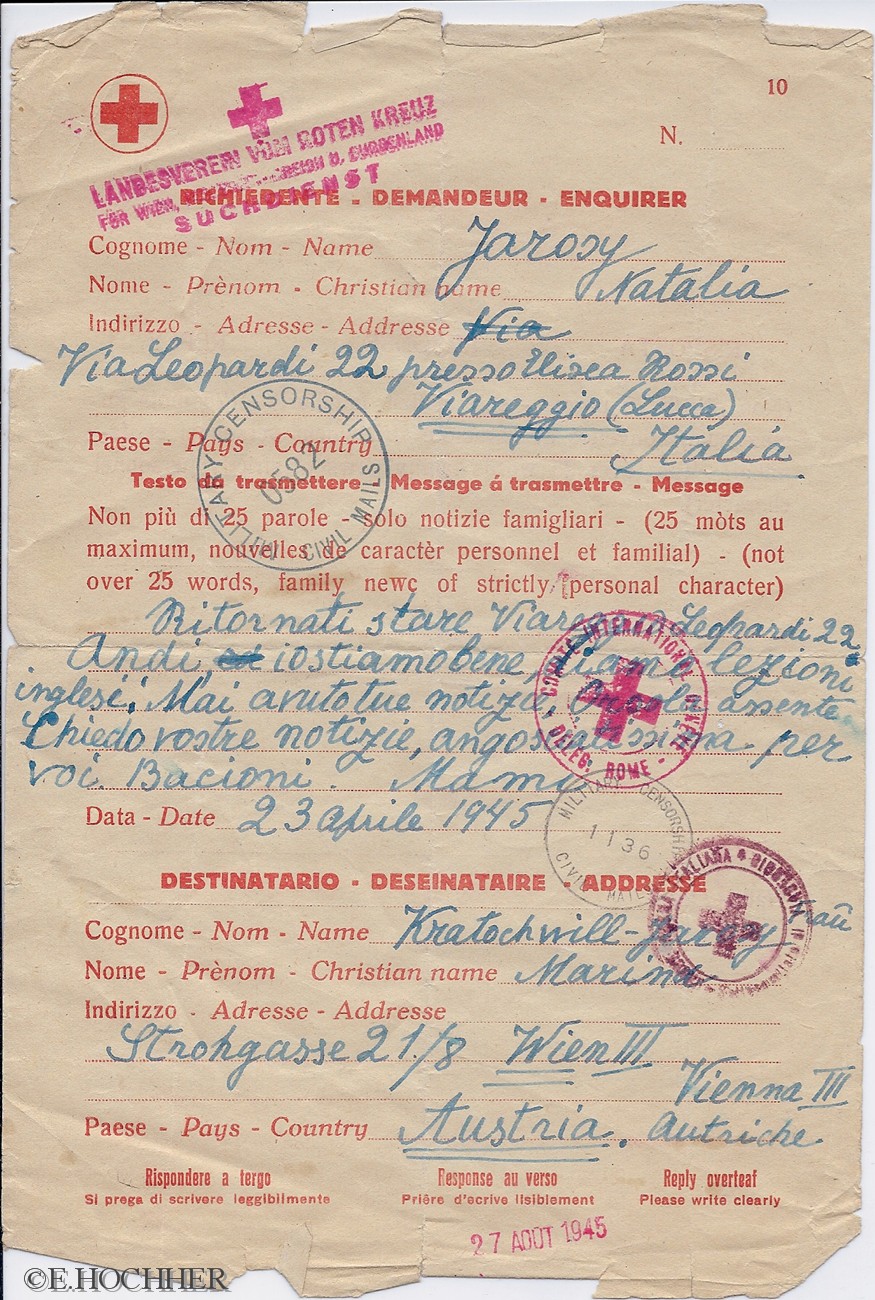 10
N.
LANDESVEREIN VOM ROTEN KREUZ
FÜR WIEN, U. BURGENLAND
SUCHDIENST
RICHIEDENTE - DEMANDEUR - ENQUIRER
Cognome - Nom - Name Jarosy
Nome - Prènom - Christian name Natalia
Indirizzo - Adresse - Addresse Via
Via Leopardi 22 presso Elisea Rossi
Viareggio (Lucca)
Paese - Pays - Country Italia
MILITARY CENSORSHIP
0582
CIVIL MAILS
Testo da trasmettere - Message á trasmettre - Message
Non più di 25 parole - solo notizie famigliari - (25 mòts au
maximum, nouvelles de caractèr personnel et familial) - (not
over 25 words, family newc of strictly personal character)
Ritornati stare Viareggio Leopardi 22
Andi, io stiamo bene, diamo lezioni
inglesi. Mai avuto tue notizie, assente
Chiedo vostre notizie, angosciatissima per
voi. Bacioni. Mamy
COMITÉ INTERNATIONAL GENÈVE
DÉLEG. ROME
Data - Date 23 aprile 1945
MILITARY CENSORSHIP
1136
CIVIL MAILS
DESTINATARIO - DESEINATAIRE - ADDRESSE
Cognome - Nom - Name Kratochwill-Jarosy Frau
Nome - Prènom - Christian name Marina
Indirizzo - Adresse - Addresse
Strohgasse 21/8 Wien III
Vienna III
Paese - Pays - Country Austria, Autriche
Rispondere a tergo Response au verso Reply overteaf
Si prega di scrivere leggibilmente Prière d'ecrive lisiblement Please write clearly
27 AOUT 1945
©E.HOCHHER